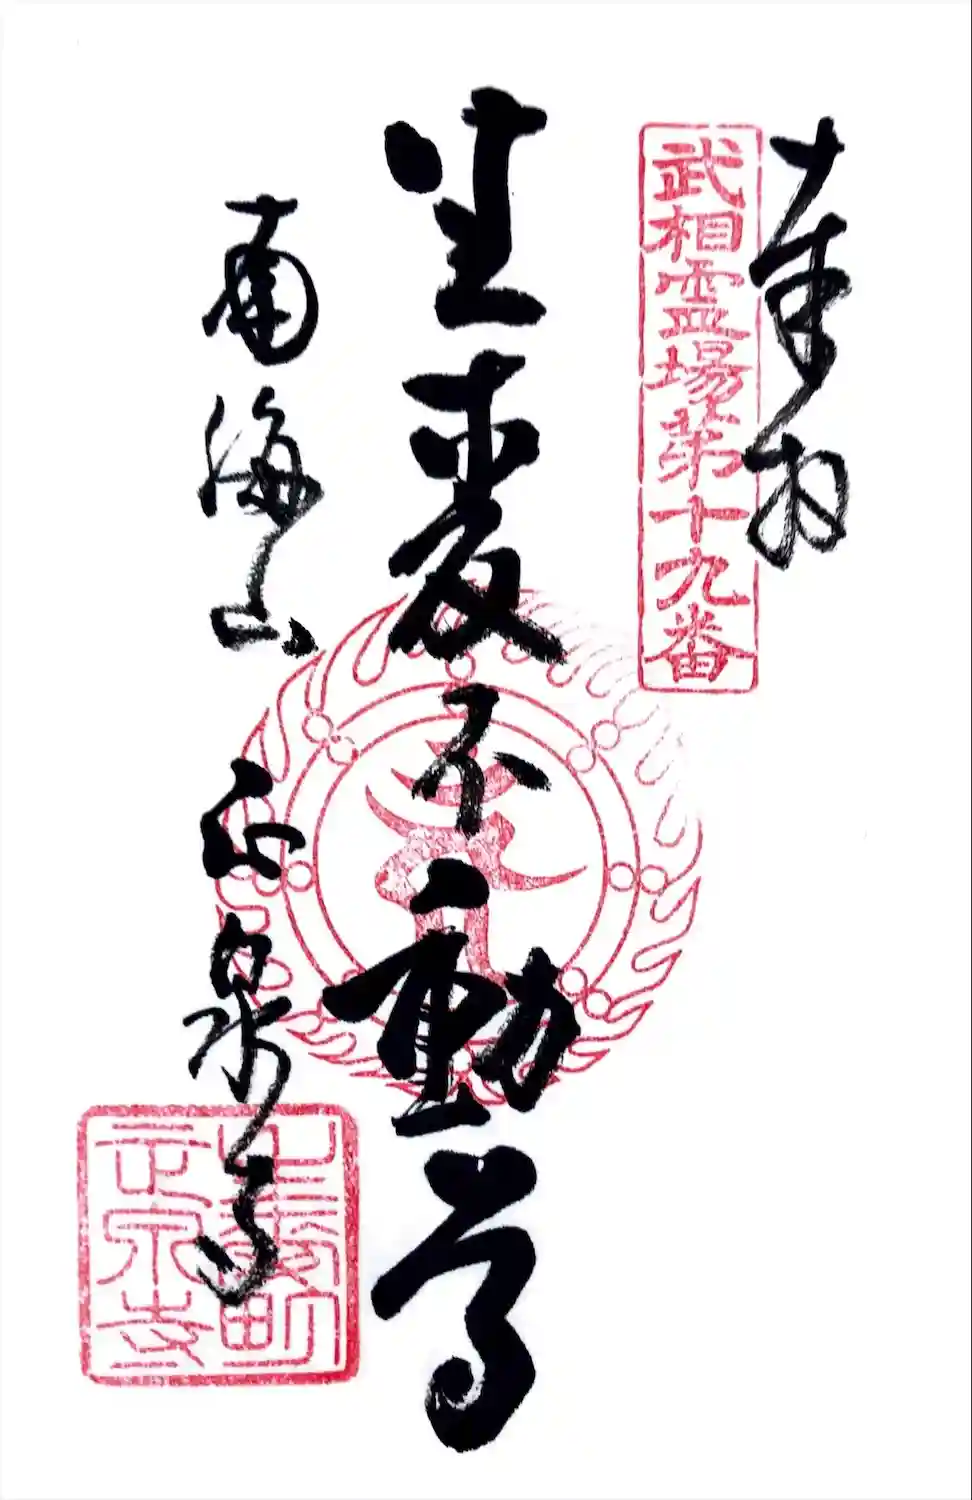 奉拝
武相霊場第十九番
生麦不動尊
南海山 正泉寺
生麦町
正泉寺